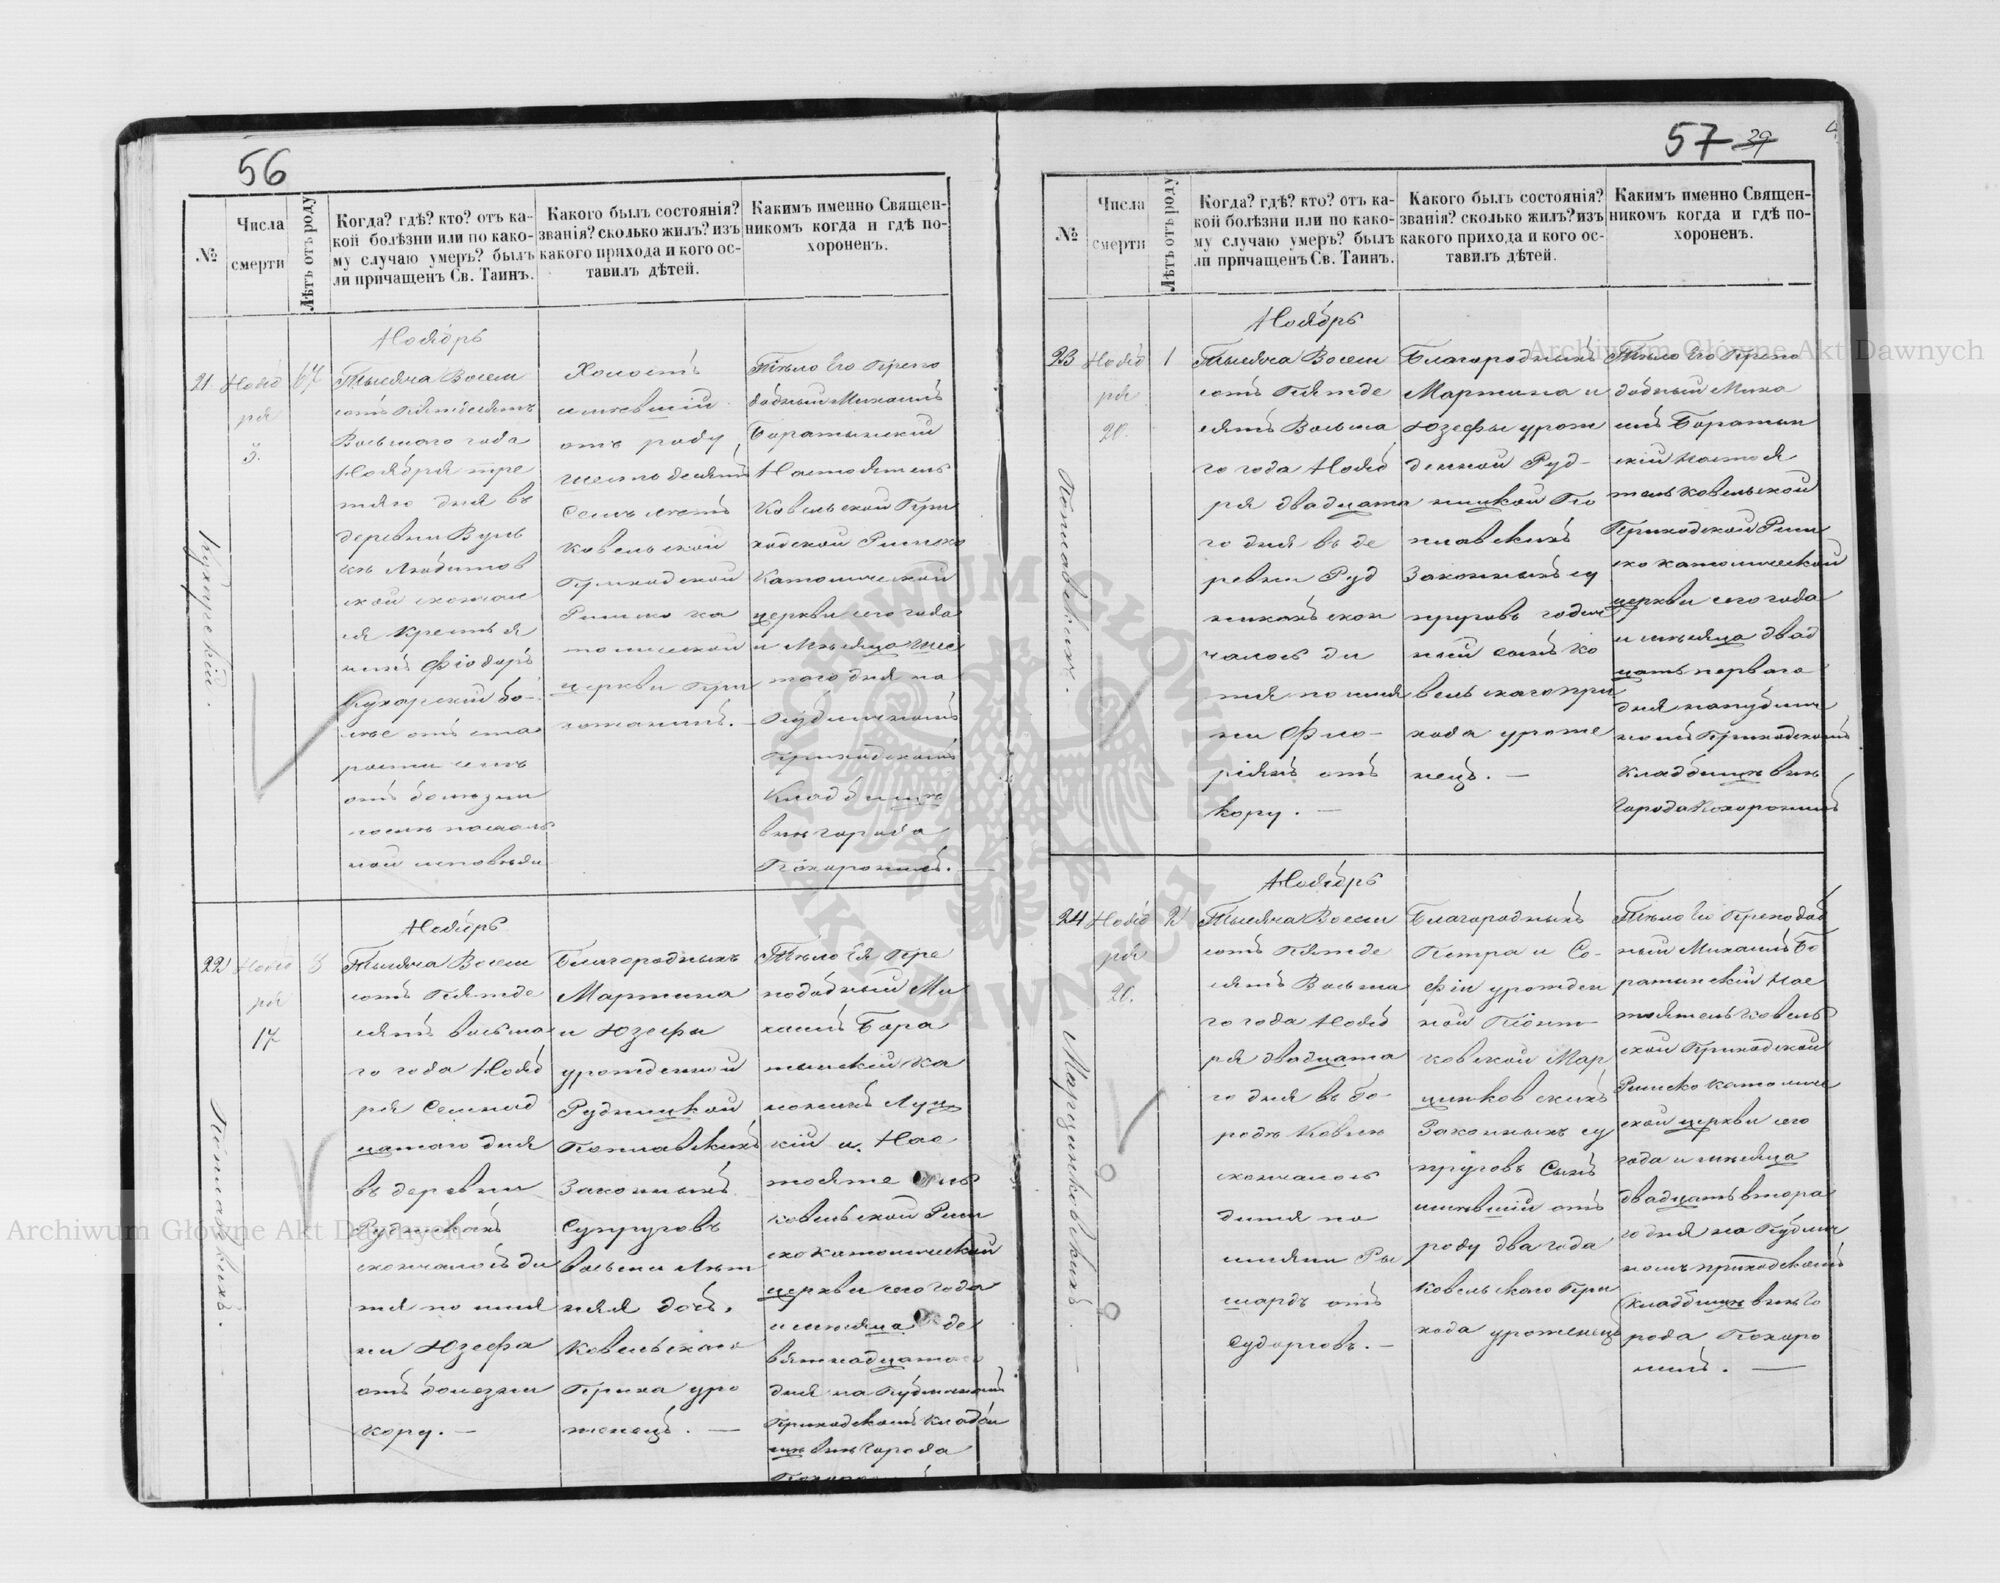 56
№
Числа
смерти
Лѣтъ отъ роду
Когда? гдѣ? кто? отъ ка-
кой болѣзни или по како-
му случаю умеръ? былъ
ли причащенъ Св. Таинъ.
Какого былъ состоянія?
званія? сколько жилъ? изъ
какого прихода и кого ос-
тавилъ дѣтей.
Какимъ именно Священ-
никомъ когда и гдѣ по-
хороненъ.
21.
Нояб
ря
3.
67
Ноябрь
Тысяча Восем
сотъ Пятдесятъ
Восьмаго года
Ноября тре
тяго дня въ
деревни Вуль
къ Любитов
ской скончал
ся Крестья
нинъ Фіодоръ
Кухарскій бо-
лѣе отъ ста
рости
отъ болезни
Холостъ
имевшій
отъ роду
шестьдесятъ
Семъ летъ
Ковельской
Приходской
Римско ка
толической
церкви При
хожанинъ.
Тѣло Его Препо
добный Михаилъ
Боратынскій
Настоятель
Ковельской При
ходской Римско
Католической
церкви сего года
и Мѣсяца шес
того дня на
Публичномъ
Приходскомъ
Кладбищѣ
внѣ города
Похоронилъ.
Кухарскій.
22
Нояб
ря
17
3
Ноябрь
Тысяча Восем
сотъ Пятде
сятъ восьма
го года Нояб
ря Семнад
цатаго дня
въ деревни
Рудникахъ
скончалось ди
тя по имя
ни Юзефа
отъ болезни
кору. —
Благородныхъ
Мартина
и Юзефы
урожденной
Рудницкой
Поплавскихъ
Законныхъ
Супруговъ
няя дочь.
Ковельскаго
Прихо уро
женецъ. —
Тѣло Ея Пре
подобный Ми
хаилъ Бора
тынскій Ка
ноникъ Луц
кій и Нас
тоятель
Ковельской Рим
ско католической
церкви сего года
и мѣсяца де
вятнадцатаго
дня на Публичномъ
Приходскомъ Кладби
щѣ внѣ города
Поплавскихъ.
57 29
№
Числа
смерти
Лѣтъ отъ роду
Когда? гдѣ? кто? отъ ка-
кой болѣзни или по како-
му случаю умеръ? былъ
ли причащенъ Св. Таинъ.
Какого былъ состоянія?
званія? сколько жилъ? изъ
какого прихода и кого ос-
тавилъ дѣтей.
Какимъ именно Священ-
никомъ когда и гдѣ по-
хороненъ.
23
Нояб
ря
20.
1
Ноябрь
Тысяча Восем
сотъ Пятде
сятъ Восьма
го года Нояб
ря двадцата
го дня въ де
ревни Руд
никахъ скон
чалось ди
тя по имя
ни Фло-
ріянъ отъ
кору. —
Благородныхъ
Мартина и
Юзефы урож
денной Руд-
ницкой По
плавскихъ
Законныхъ су
пруговъ годич
ный сынъ Ко
вельскаго при
хода уроже
нецъ. —
Тѣло Его Препо
добный Миха
илъ Боратын
скій Настоя
тель Ковельской
Приходской Рим
ско католической
церкви сего года
и мѣсяца двад
цать перваго
дня на публич
номъ Приходскомъ
Кладбищѣ внѣ
города Похоронилъ
Поплавскихъ.
24
Нояб
ря
20.
2
Ноябрь
Тысяча Восем
сотъ Пятде
сятъ Восьма
го года Нояб
ря двадцата
го дня въ го-
родѣ Ковлѣ
скончалось
дитя по
имяни Ры
шардъ отъ
судорговъ. —
Благородныхъ
Петра и Со-
фіи урожден
ной Піонт-
ковской Мар
цинковскихъ
Законныхъ су
пруговъ Сынъ
имѣвшій отъ
роду два года
Ковельскаго При
хода уроженецъ
Тѣло Его Преподоб
ный Михаилъ Бо
ратынскій Нас
тоятель Ковель
ской Приходской
Римско католиче
ской церкви сего
года и мѣсяца
двадцать втора
го дня на Публич
номъ приходскомъ
кладбищѣ внѣ Го
рода Похоро
нилъ. —
Марцинковскихъ.
Archiwum Główne Akt Dawnych
Archiwum Główne Akt Dawnych
ARCHIWUM GŁÓWNE AKT DAWNYCH